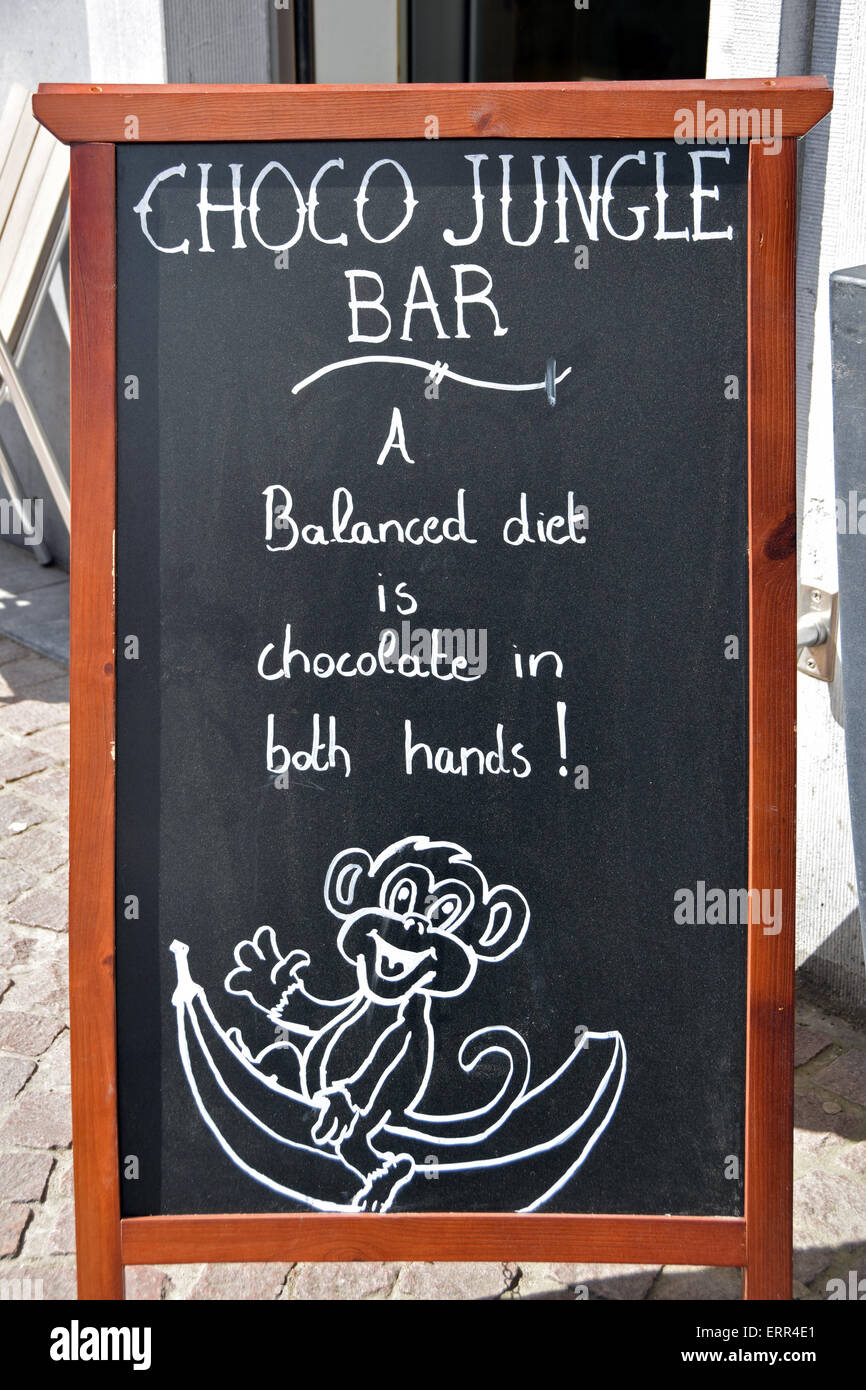 CHOCO JUNGLE
BAR
A
Balanced diet
is
chocolate in
both hands !
alamy
Image ID: ERR4E1
www.alamy.com